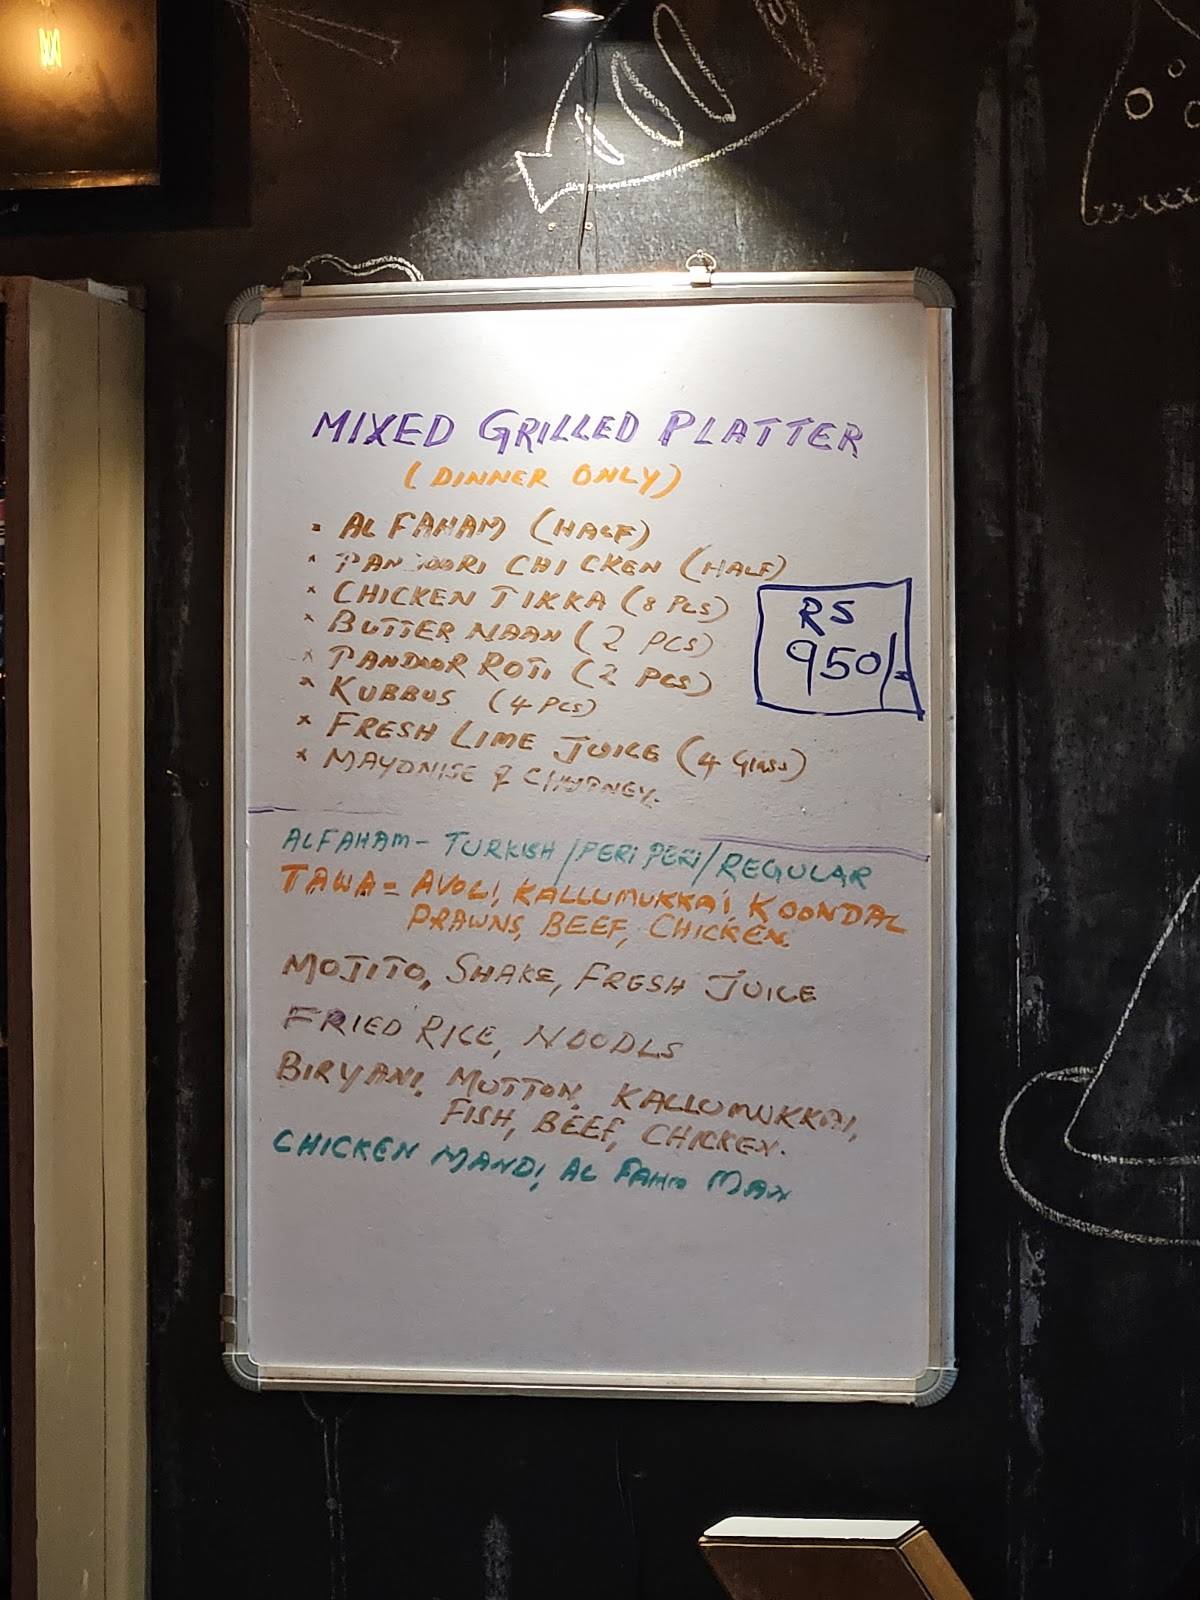 MIXED GRILLED PLATTER
(DINNER ONLY)
AL FAHAM (HALF)
TANDOORI CHICKEN (HALF)
× CHICKEN TIKKA (8 PCS)
× BUTTER NAAN (2 PCS)
× TANDOOR ROTI (2 PCS)
× KUBBUS (4 PCS)
× FRESH LIME JUICE (4 Glass)
× MAYONISE & CHUTNEY.
RS
950/=
ALFAHAM - TURKISH / PERI PERI / REGULAR
TAWA = AVOLI, KALLUMUKKAI, KOONDAL
PRAWNS, BEEF, CHICKEN.
MOJITO, SHAKE, FRESH JUICE
FRIED RICE, NOODLS
BIRYANI, MUTTON, KALLUMUKKAI,
FISH, BEEF, CHICKEN.
CHICKEN MANDI, AL FAHM